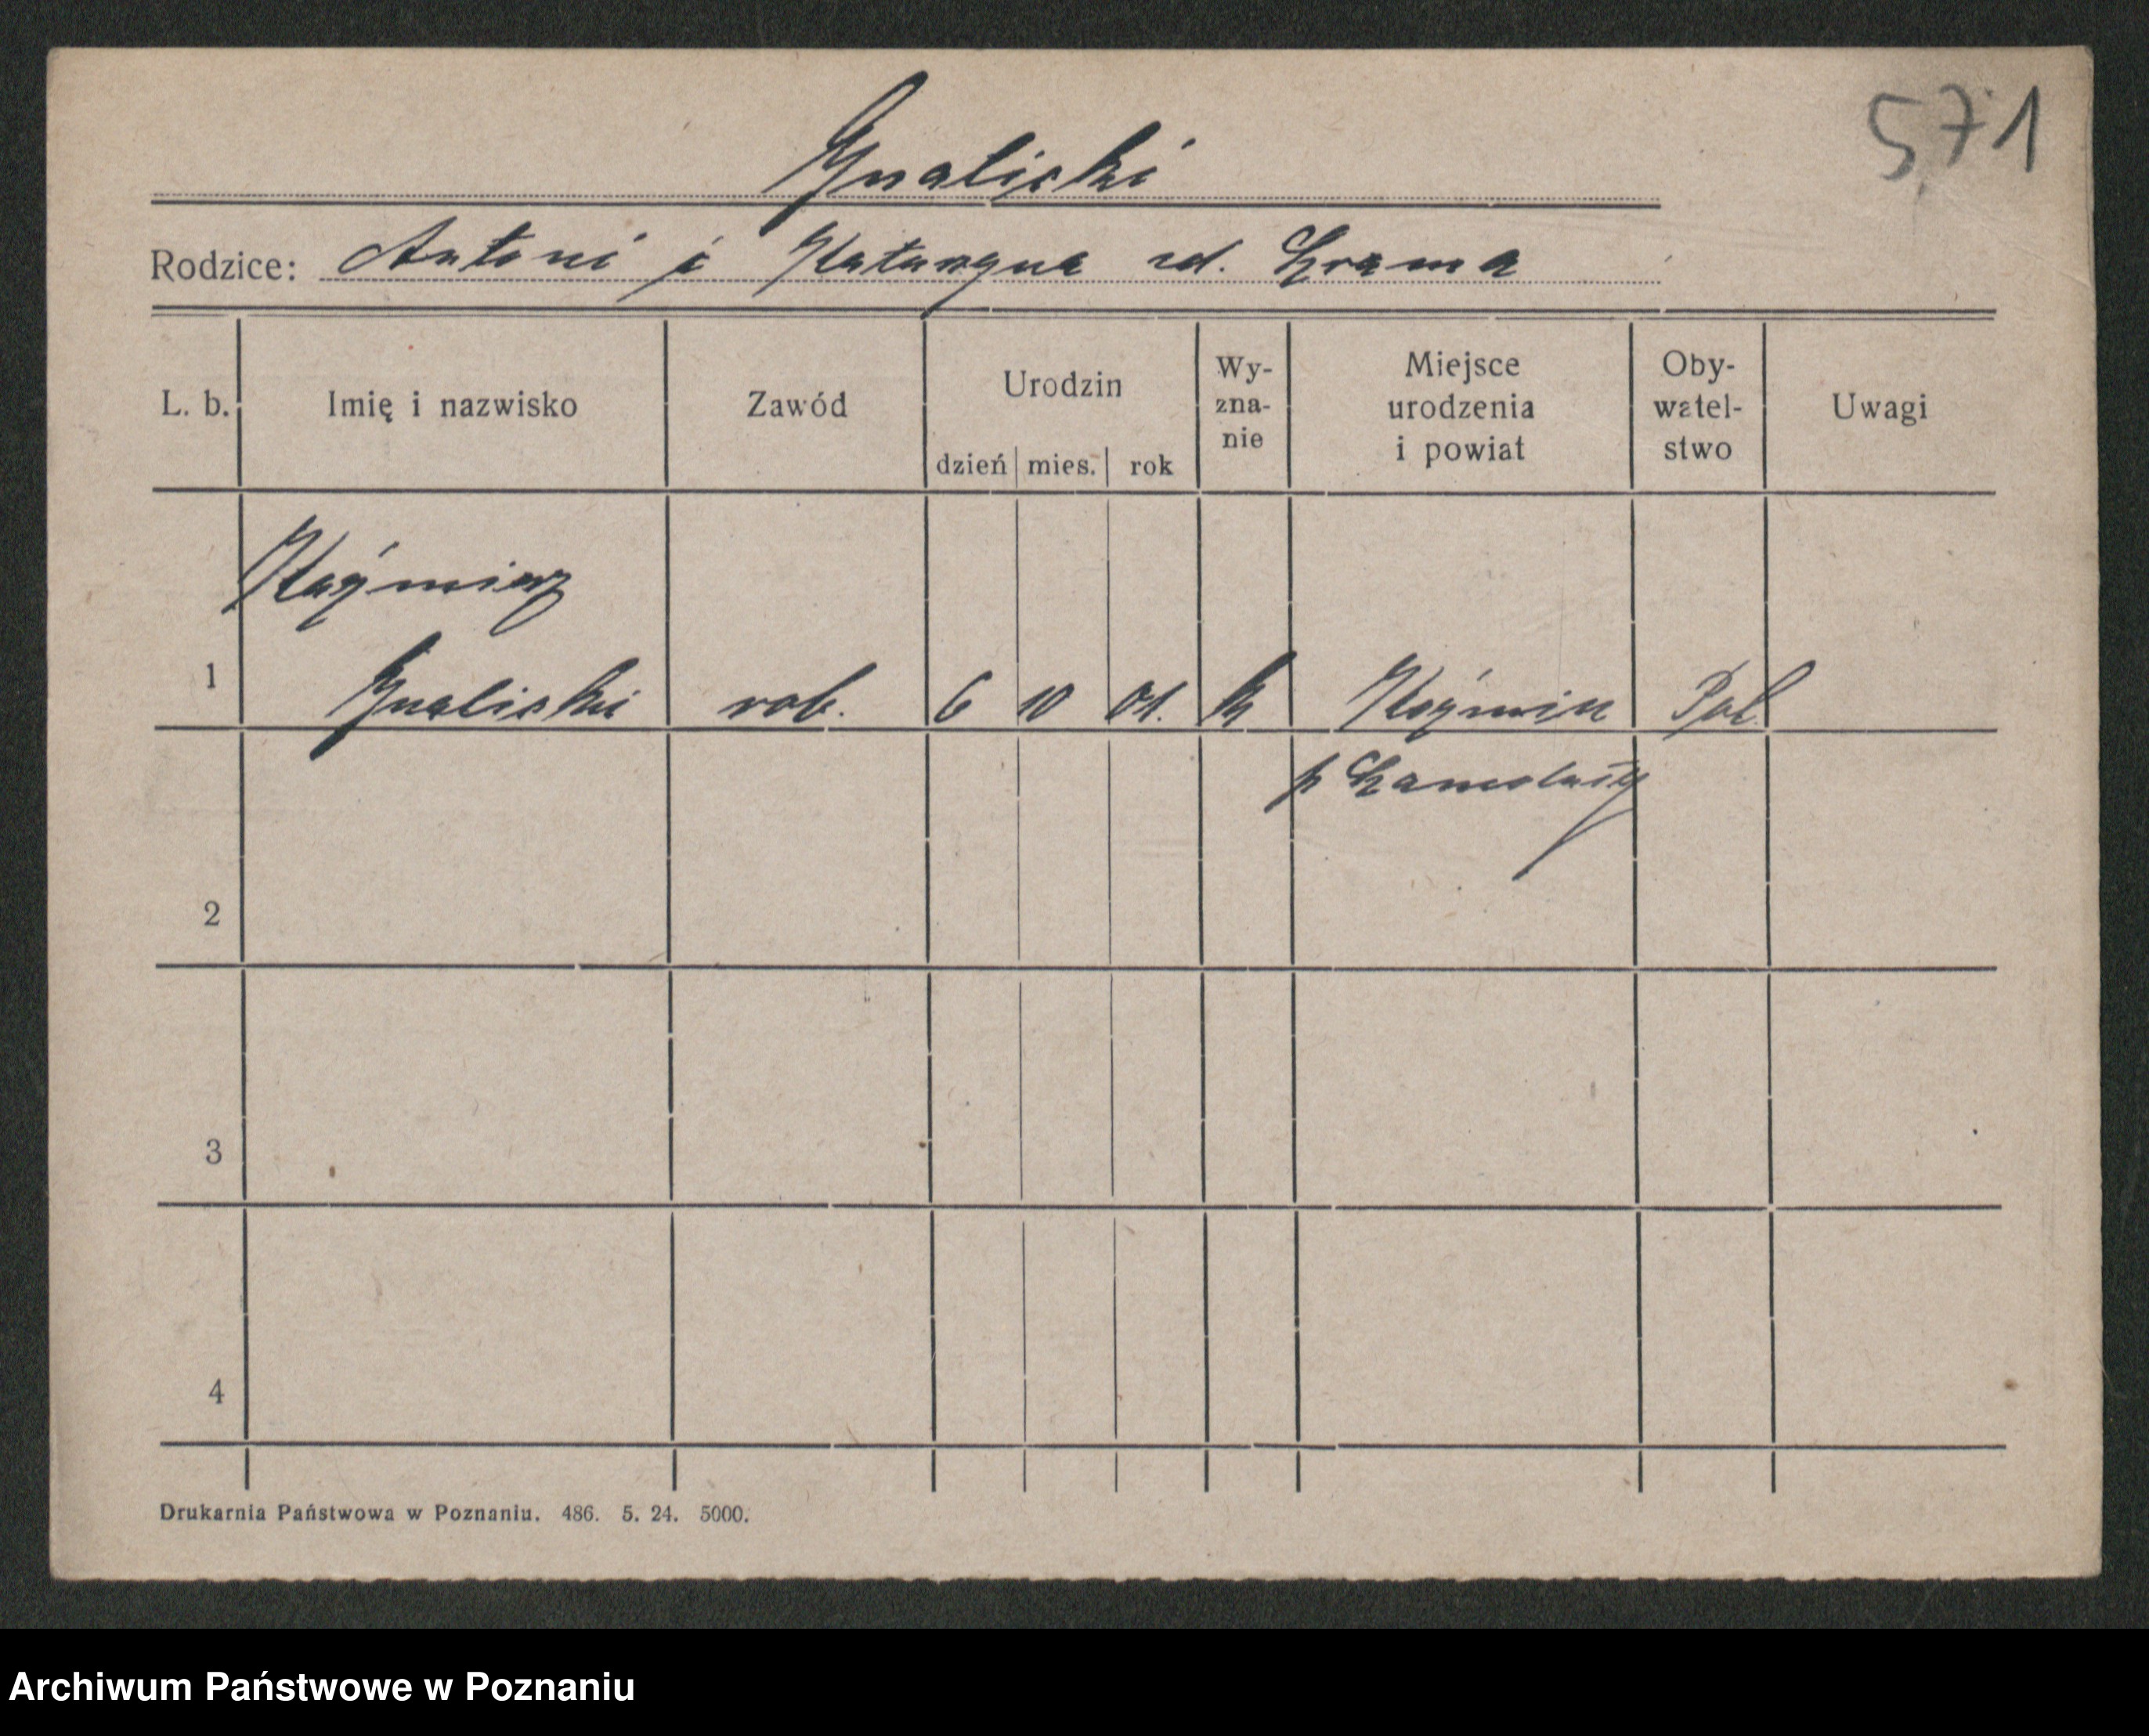 571
Gnaliski
Rodzice: Antoni i Katarzyna rd.
L. b. Imię i nazwisko Zawód Urodzin dzień mies. rok Wy-zna-nie Miejsce urodzenia i powiat Oby-watel-stwo Uwagi
Kaźmierz
1 Gnaliski rob. 6 10 01. k Koźmin Pol.
p
2
3
4
Drukarnia Państwowa w Poznaniu. 486. 5. 24. 5000.
Archiwum Państwowe w Poznaniu